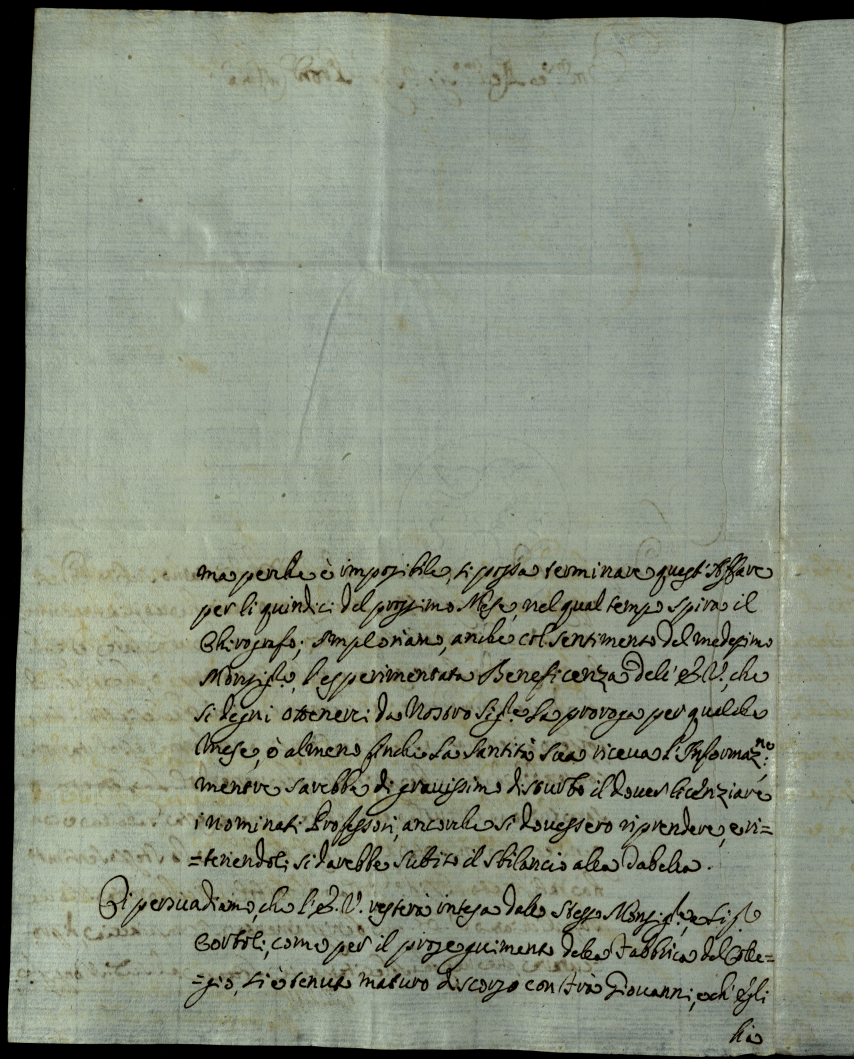 ma perche è impossibile, si possa terminare quest'Affare
per li quindici del prossimo Mese, nel qual tempo spira il
Chirografo; Imploriamo, anche col sentimento del medesimo
Monsig.re, l'esperimentata Beneficenza dell'E.V., che
si degni ottenerci da Nostro Sig.re la proroga per qualche
mese, ò almeno finche la Santità Sua riceva l'Informaz.ne;
mentre sarebbe di gravissimo disturbo il dover licenziare
i nominati Professori, ancorche si dovessero riprendere, e ri=
=tenendoli si darebbe subito il sbilancio alla Tabella.
Ci persuadiamo, che l'E.V. resterà intesa dallo stesso Monsig.re, e Sig.re
Bortoli, come per il proseguimento della Fabbrica del Colle=
=gio, si è tenuto maturo discorso con Frà Giovanni, e ch'egli
hà